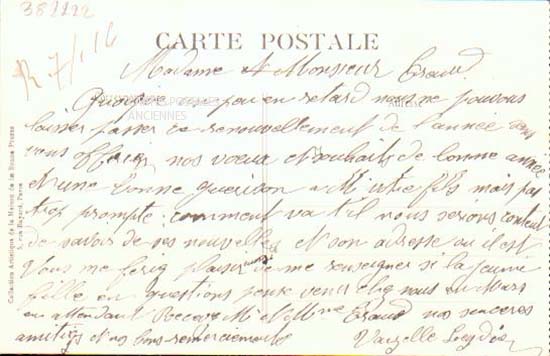 382222
R 7/1.16
CARTE POSTALE
Madame et Monsieur Eraud.
Quoique un peu en retard nous ne pouvons
ANCIENNES
laisser passer ce renouvellement de l'année sans
vous offrir nos voeux et souhaits de bonne année
et une bonne guerison a Mr votre fils mais pas
trop prompte. comment va t'il nous serions content
de savoir de ses nouvelles et son adresse ou il est
Vous me feriez plaisir de me renseigner si la jeune
fille en questions peut venir chez nous
en attendant Recevez Mr et Mme Eraud nos sinceres
amitiés et nos bons remerciements
Collection Artistique de la Maison de la Bonne Presse
5, rue Bayard, Paris